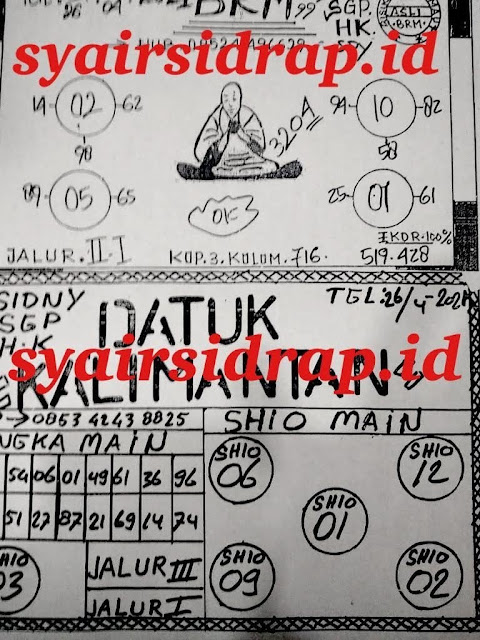 26
2021
BRM 99
SGP.
HK.
SDY
ASLI
BRM
syairsidrap.id
14 02 62
98
3204
94 10 82
58
89 05 65
OK
25 01 61
JALUR.II-I
KOP.3.KOLOM.716.
IKOR.100%
519.428
SIDNY
SGP
H.K
DATUK
TGL:26/4-2021
syairsidrap.id
KALIMANTAN
0853 4243 8825
NGKA MAIN
SHIO MAIN
54 06 01 49 61 36 96
51 27 87 21 69 14 74
SHIO
06
SHIO
12
SHIO
01
SHIO
09
SHIO
02
HIO
03
JALUR III
JALUR I